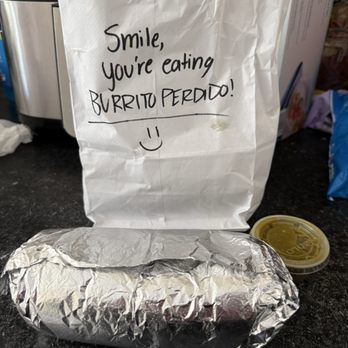 Smile,
you're eating
BURRITO PERDIDO!